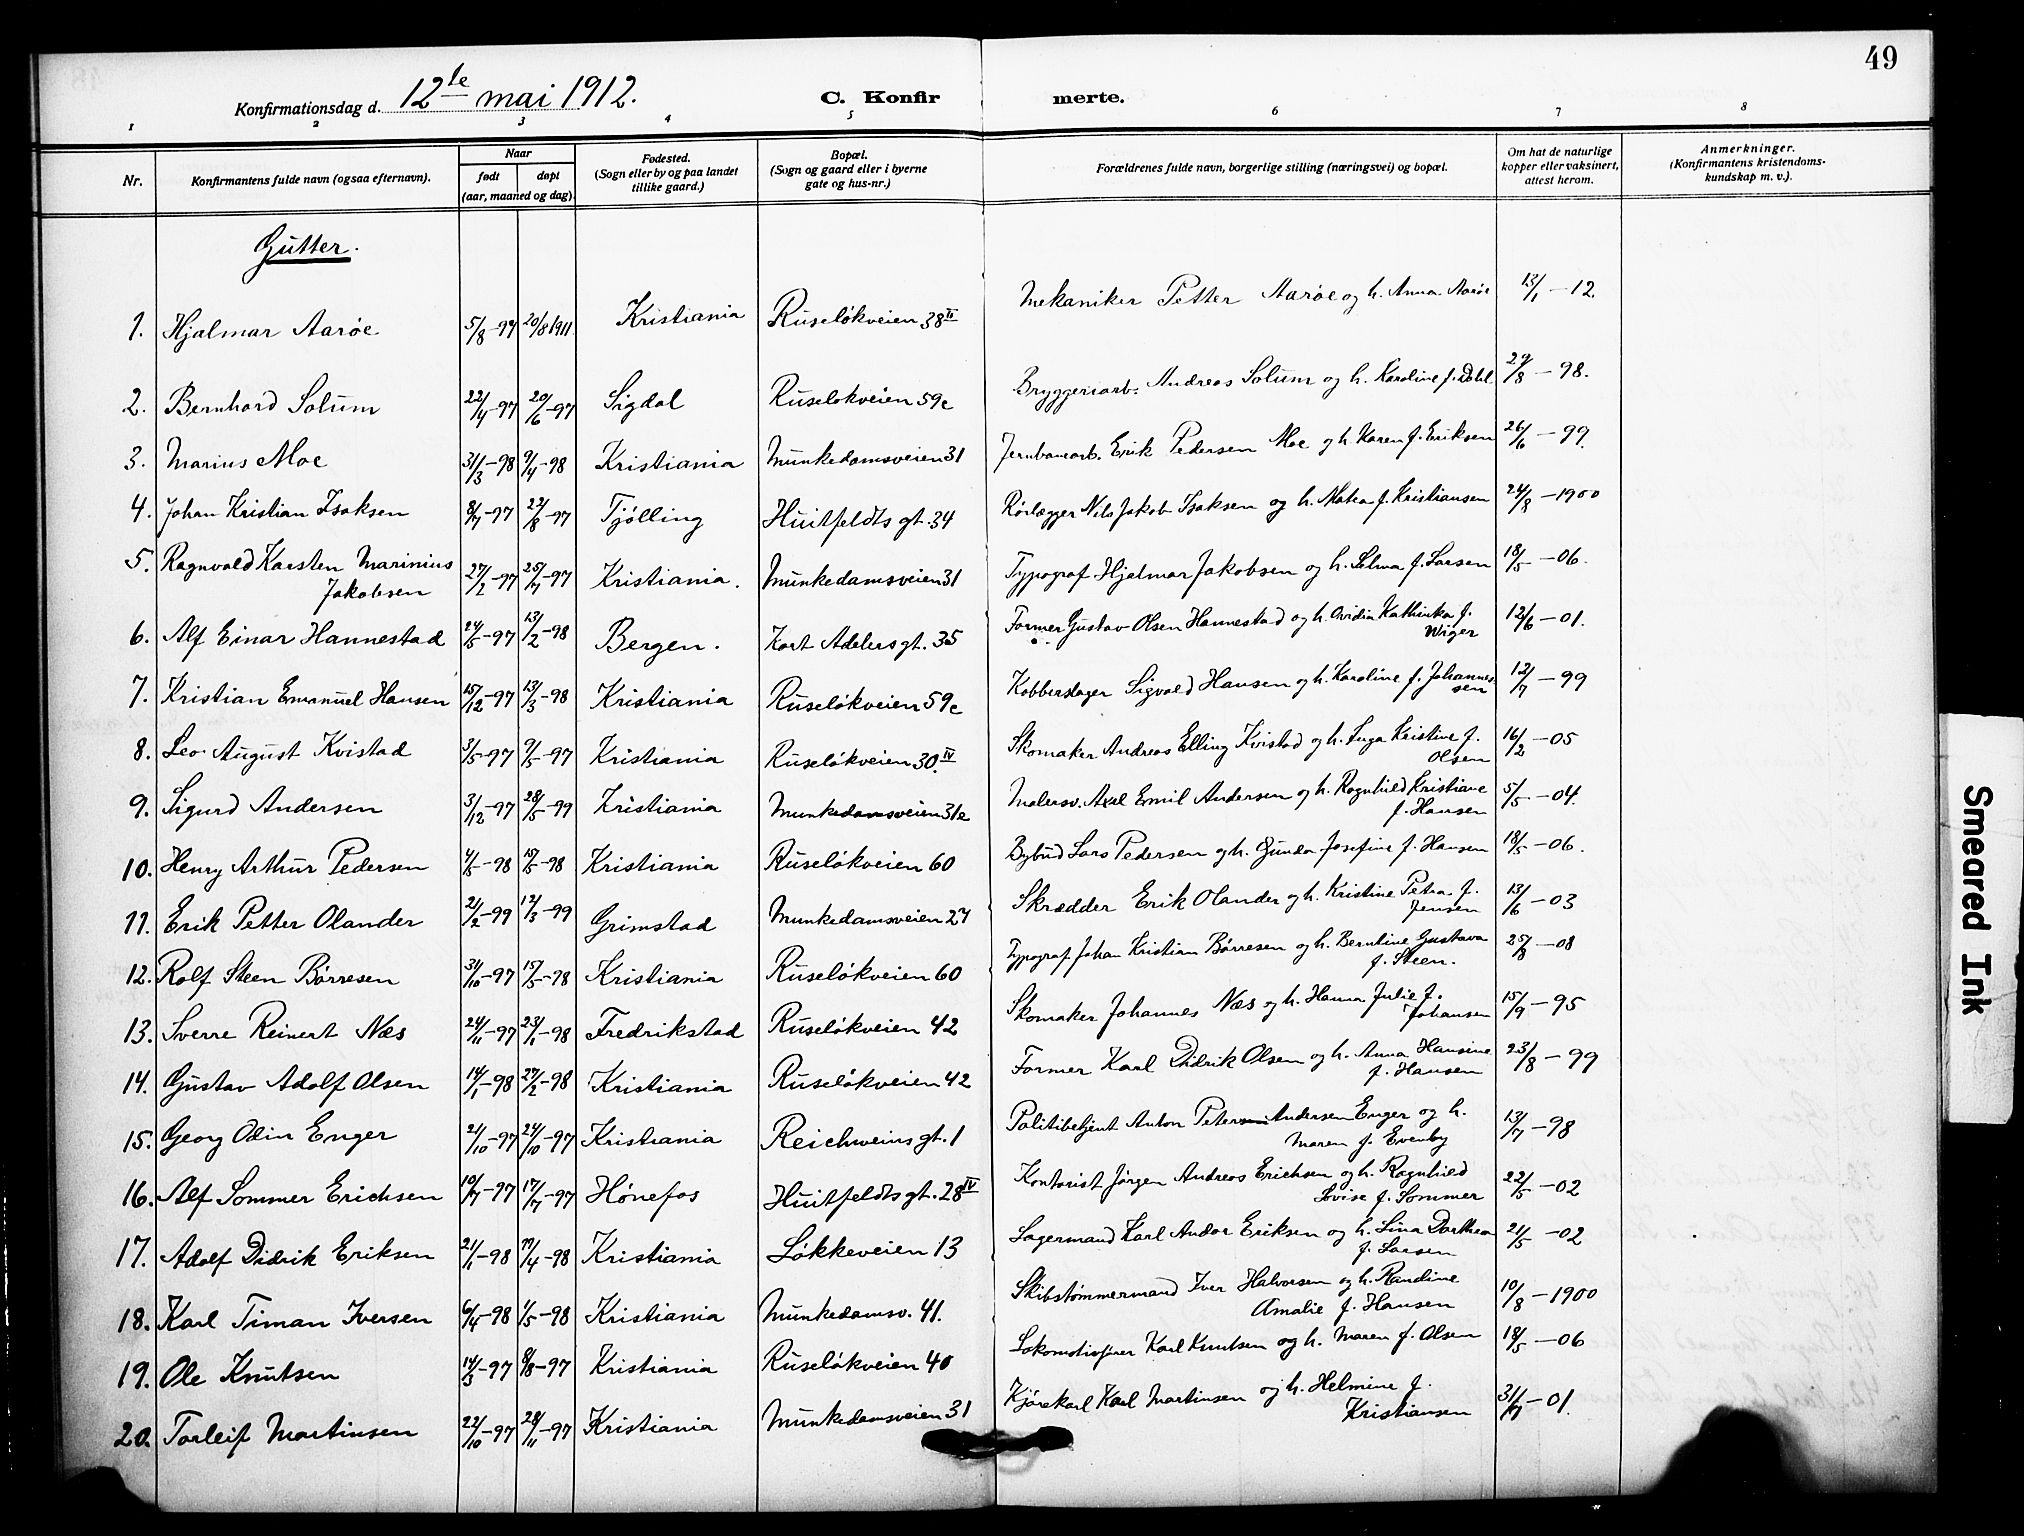 49
Konfirmationsdag d. 12te mai 1912. C. Konfirmerte.
1 2 3 4 5 6 7 8
Nr. Konfirmantens fulde navn (ogsaa efternavn). Naar født døpt (aar, maaned og dag). Fødested. (Sogn eller by og paa landet tillike gaard.) Bopæl. (Sogn og gaard eller i byerne gate og hus-nr.) Forældrenes fulde navn, borgerlige stilling (næringsvei) og bopæl. Om hat de naturlige kopper eller vaksinert, attest herom. Anmerkninger. (Konfirmantens kristendomskundskap m. v.).
Gutter.
1. Hjalmar Aarøe 5/8-97 20/8 1911 Kristiania Ruseløkveien 38 II Mekaniker Petter Aarøe og h. Anna Aarøe 13/1-12.
2. Bernhard Solum 22/4-97 20/6-97 Sigdal Ruseløkveien 59c Bryggeriarb. Andreas Solum og h. Karoline f. Dahl 29/8-98.
3. Marius Moe 31/3-98 9/4-98 Kristiania Munkedamsveien 31 Jernbanearb. Erik Pedersen Moe og h. Karen f. Eriksen 26/6-99.
4. Johan Kristian Isaksen 8/7-97 22/8-97 Tjølling Huitfeldts gt. 34 Rørlægger Nils Jakob Isaksen og h. Matea f. Kristiansen 24/8-1900
5. Ragnvald Karsten Marinius 27/2-97 25/7-97 Kristiania. Munkedamsveien 31 Typograf Hjalmar Jakobsen og h. Selma f. Larsen 18/5-06.
Jakobsen
6. Alf Einar Hannestad 24/5-97 13/2-98 Bergen. Kort Adelers gt. 35 Former Gustav Olsen Hannestad og h. Ovidia Kathinka f. 12/6-01.
Wiger
7. Kristian Emanuel Hansen 15/12-97 13/3-98 Kristiania Ruseløkveien 59c Kobberslager Sigvald Hansen og h. Karoline f. Johannes 12/7-99
sen
8. Leo August Kvistad 3/5-97 9/5-97 Kristiania Ruseløkveien 30. IV Skomaker Andreas Elling Kvistad og h. Inga Kristine f. 16/2-05
Olsen
9. Sigurd Andersen 3/12-97 28/5-99 Kristiania Munkedamsveien 31c Malersv. Axel Emil Andersen og h. Ragnhild Kristiane 5/5-04.
f. Hansen
10. Henry Arthur Pedersen 4/5-98 15/5-98 Kristiania Ruseløkveien 60 Bybud Lars Pedersen og h. Gunda Josefine f. Hansen 18/5-06.
11. Erik Petter Olander 21/2-99 12/3-99 Grimstad Munkedamsveien 27 Skrædder Erik Olander og h. Kristine Petra f. 13/6-03
Jensen
12. Rolf Steen Børresen 31/10-97 15/5-98 Kristiania Ruseløkveien 60 Typograf Johan Kristian Børresen og h. Berntine Gustava 25/8-08
f. Steen.
13. Sverre Reinert Næs 24/11-97 23/1-98 Fredrikstad Ruseløkveien 42 Skomaker Johannes Næs og h. Hanna Julie f. 15/9-95
Johansen
14. Gustav Adolf Olsen 14/1-98 27/2-98 Kristiania Ruseløkveien 42 Former Karl Didrik Olsen og h. Anna Hansine 23/8-99
f. Hansen
15. Georg Odin Enger 21/10-97 24/10-97 Kristiania Reichweins gt. 1 Politibetjent Anton Petersen Andersen Enger og h. 13/7-98
Maren f. Evenby
16. Alf Sommer Erichsen 10/7-97 17/7-97 Hønefos Huitfeldts gt. 28 IV Kontorist Jørgen Andreas Erichsen og h. Ragnhild 22/5-02
Lovise f. Sommer
17. Adolf Didrik Eriksen 21/1-98 17/4-98 Kristiania Løkkeveien 13 Lagermand Karl Andor Eriksen og h. Lina Dorthea 21/5-02
f. Larsen
18. Karl Timan Iversen 6/4-98 1/5-98 Kristiania Munkedamsv. 41. Skibstømmermand Iver Halvorsen og h. Randine 10/8-1900
Amalie f. Hansen
19. Ole Knutsen 14/3-97 8/8-97 Kristiania Ruseløkveien 40 Lokomotivfører Karl Knutsen og h. Maren f. Olsen 18/5-06
20. Torleif Martinsen 22/10-97 28/11-97 Kristiania Munkedamsveien 31 Kjørekarl Karl Martinsen og h. Helmine f. 31/7-01.
Kristiansen
Smeared Ink